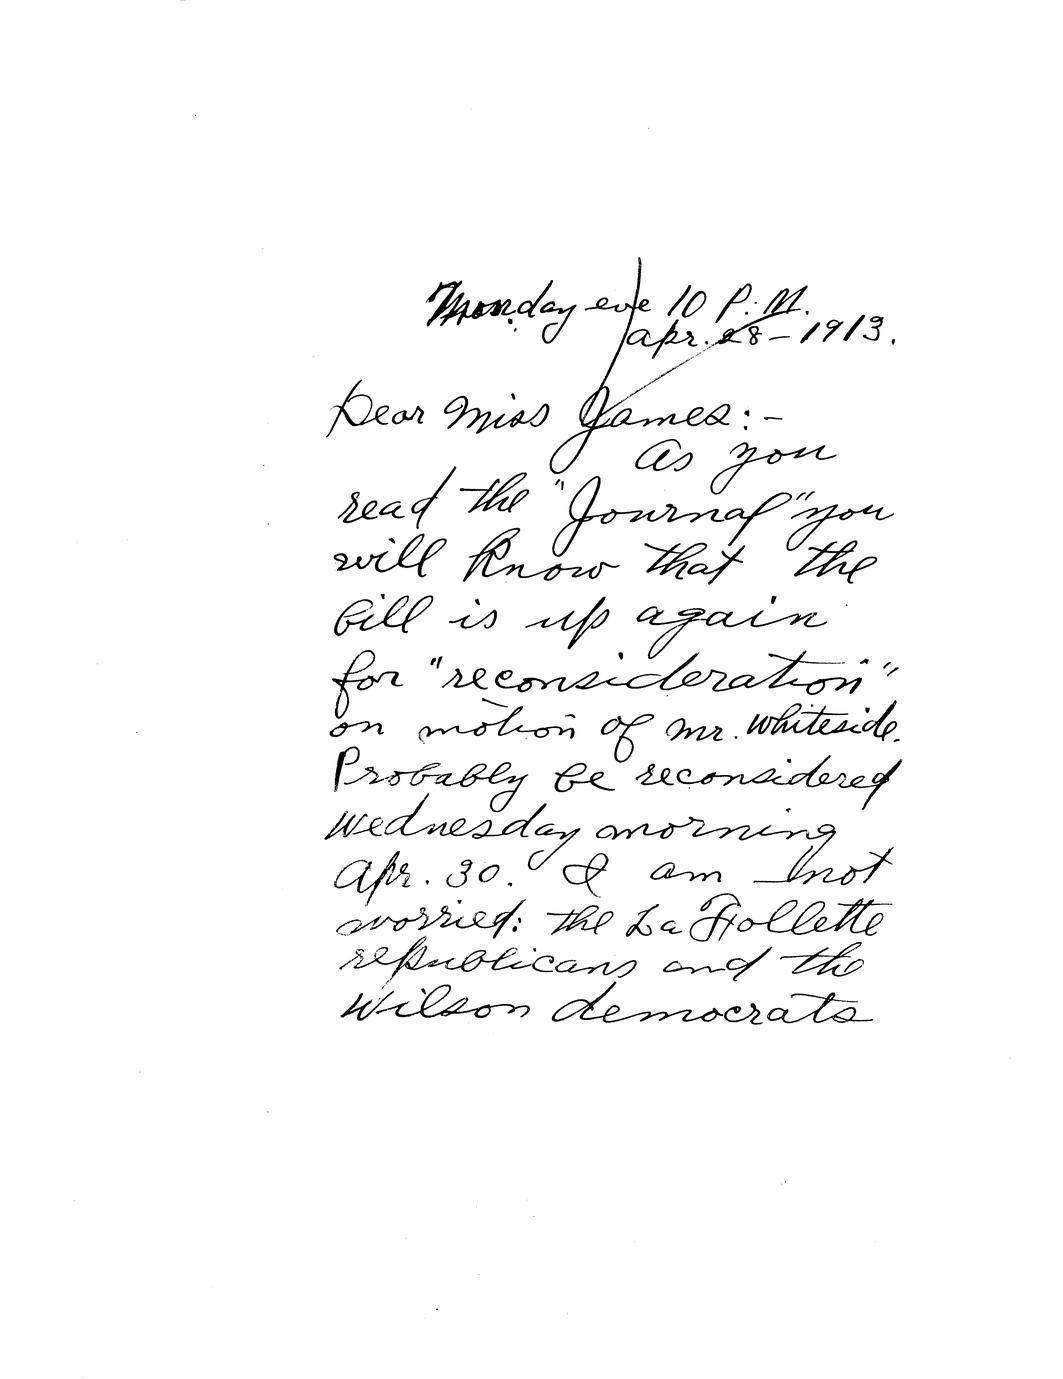 Monday eve 10 P.M.
Apr. 28-1913.
Dear Miss James:-
As you
read the "Journal" you
will know that the
bill is up again
for "reconsideration"
on motion of Mr. Whiteside.
Probably be reconsidered
Wednesday morning
Apr. 30. I am not
worried: the La Follette
republicans and the
Wilson democrats